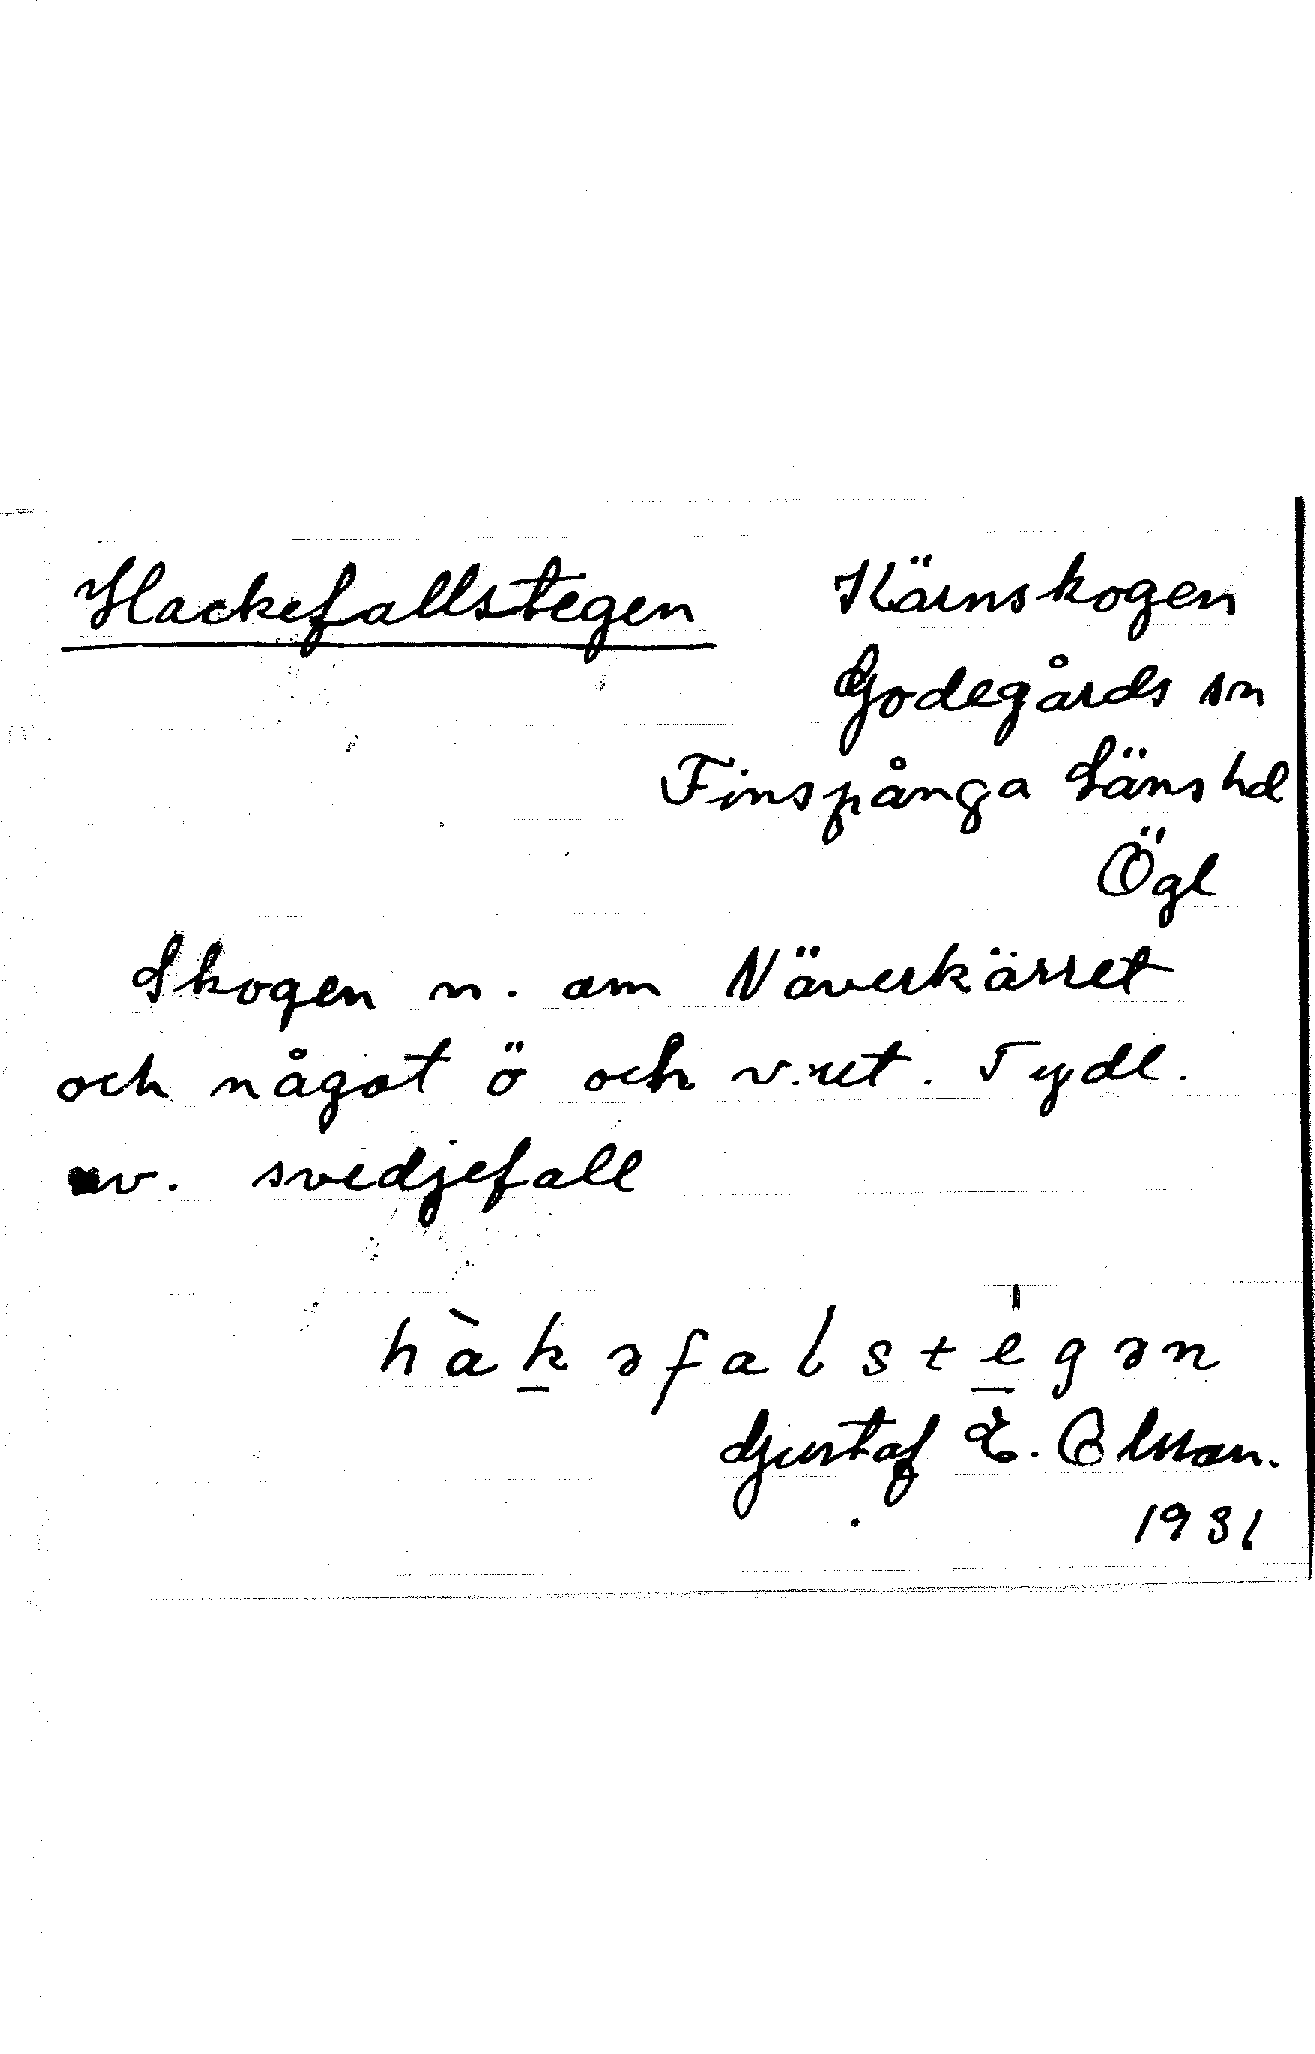 Hackefallstegen
Kärnskogen
Godegårds sn
Finspånga Läns hd
Ögl
Skogen n. om Näverkärret
och något ö och v. ut. Tydl.
v. svedjefall
hàkəfalstegən
Gustaf E. Olsson.
1931